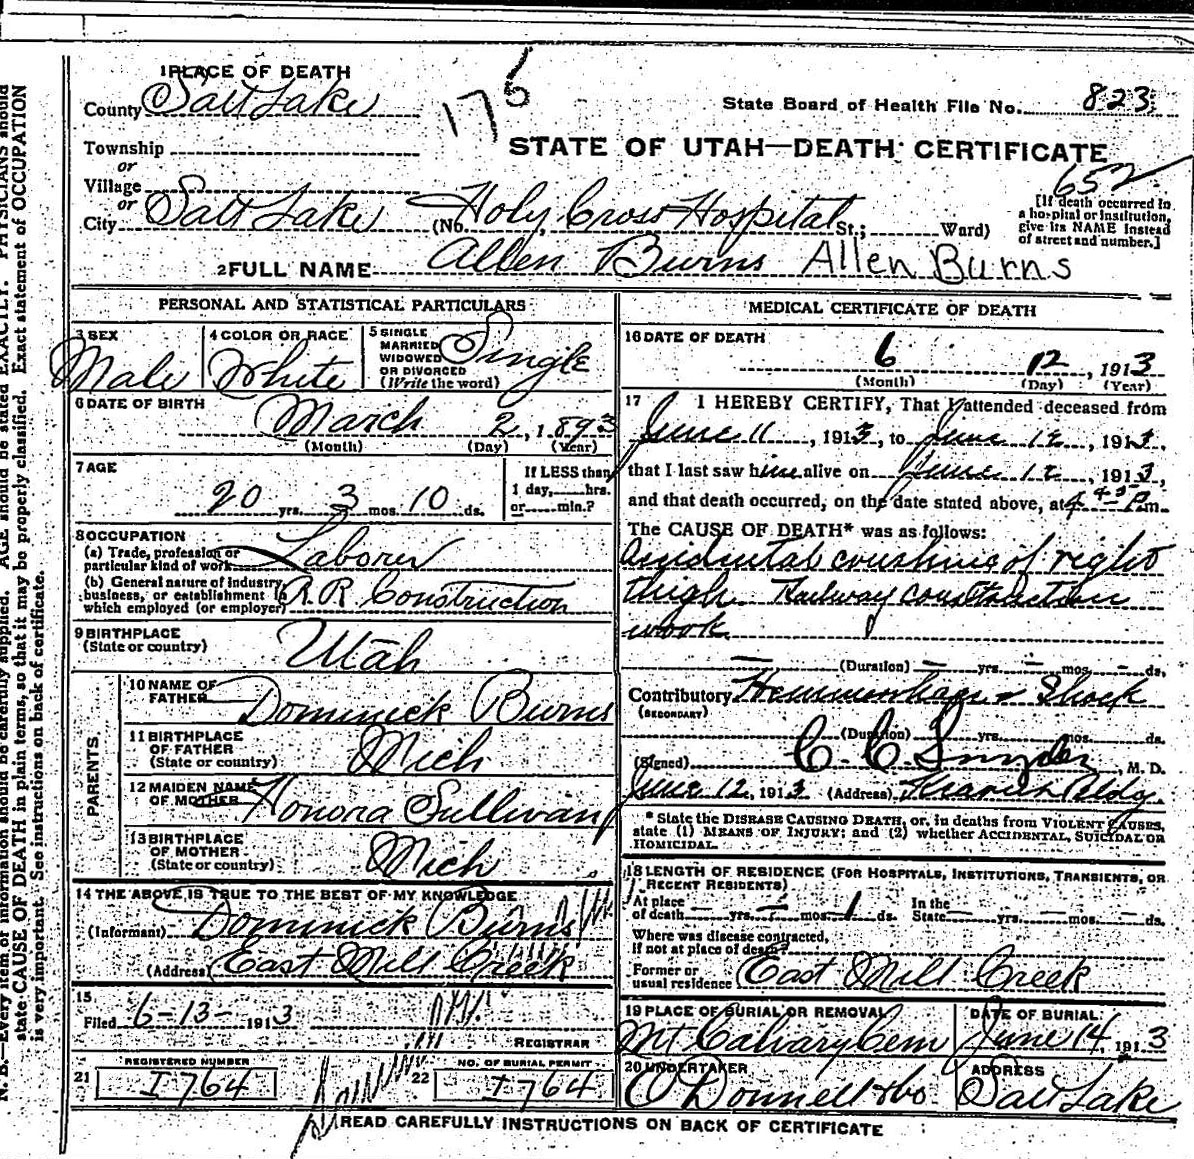 1 PLACE OF DEATH
County Salt Lake
175
State Board of Health File No. 823
Township
or
Village
or
City Salt Lake
STATE OF UTAH—DEATH CERTIFICATE
652
(No. Holy Cross Hospital St.; Ward)
[If death occurred in a hospital or institution, give its NAME instead of street and number.]
2 FULL NAME Allen Burns Allen Burns
PERSONAL AND STATISTICAL PARTICULARS
3 SEX
Male
4 COLOR OR RACE
White
5 SINGLE
MARRIED
WIDOWED
OR DIVORCED
(Write the word)
Single
6 DATE OF BIRTH
March 2, 1893
(Month) (Day) (Year)
7 AGE
20 yrs. 3 mos. 10 ds.
If LESS than
1 day, hrs.
or min.?
8 OCCUPATION
(a) Trade, profession or
particular kind of work Laborer
(b) General nature of industry,
business, or establishment in
which employed (or employer) R R Construction
9 BIRTHPLACE
(State or country)
Utah
PARENTS
10 NAME OF
FATHER
Dominick Burns
11 BIRTHPLACE
OF FATHER
(State or country)
Mich
12 MAIDEN NAME
OF MOTHER
Honora Sullivan
13 BIRTHPLACE
OF MOTHER
(State or country)
Mich
14 THE ABOVE IS TRUE TO THE BEST OF MY KNOWLEDGE
(Informant) Dominick Burns
(Address) East Mill Creek
15
Filed 6-13- 1913
REGISTRAR
REGISTERED NUMBER
21 I764
NO. OF BURIAL PERMIT
22 I764
MEDICAL CERTIFICATE OF DEATH
16 DATE OF DEATH
6 12, 1913
(Month) (Day) (Year)
17 I HEREBY CERTIFY, That I attended deceased from
June 11, 1913, to June 12, 1913,
that I last saw him alive on June 12, 1913,
and that death occurred, on the date stated above, at P.m.
The CAUSE OF DEATH* was as follows:
Accidental crushing of right
thigh. Railway construction
work.
(Duration) yrs. mos. ds.
Contributory Hemmorhage & Shock
(SECONDARY)
(Duration) yrs. mos. ds.
(Signed) C. C. Snyder, M. D.
June 12, 1913 (Address) Kearns Bldg.
* State the DISEASE CAUSING DEATH, or, in deaths from VIOLENT CAUSES,
state (1) MEANS OF INJURY; and (2) whether ACCIDENTAL, SUICIDAL OR
HOMICIDAL.
18 LENGTH OF RESIDENCE (FOR HOSPITALS, INSTITUTIONS, TRANSIENTS, OR
RECENT RESIDENTS)
At place
of death yrs. mos. 1 ds.
In the
State yrs. mos. ds.
Where was disease contracted,
if not at place of death?
Former or
usual residence East Mill Creek
19 PLACE OF BURIAL OR REMOVAL
Mt Calvary Cem
DATE OF BURIAL
June 14, 1913
20 UNDERTAKER
O'Donnell & Co.
ADDRESS
Salt Lake
READ CAREFULLY INSTRUCTIONS ON BACK OF CERTIFICATE
N. B.—Every item of information should be carefully supplied. AGE should be stated EXACTLY. PHYSICIANS should
state CAUSE OF DEATH in plain terms, so that it may be properly classified. Exact statement of OCCUPATION
is very important. See instructions on back of certificate.